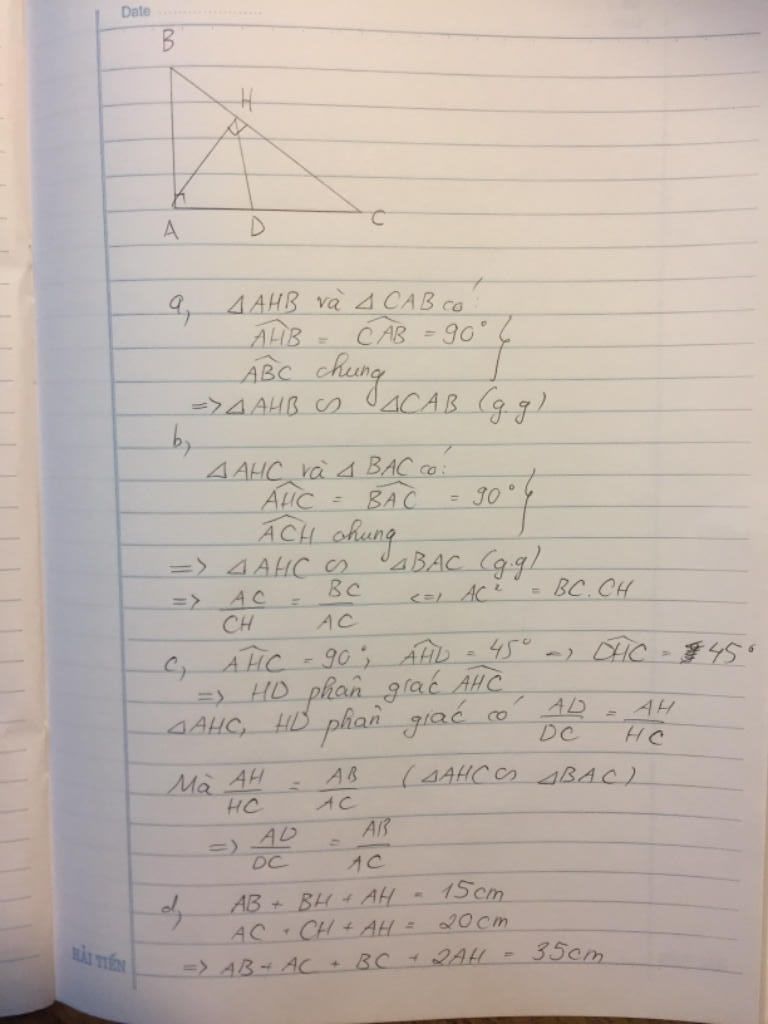 Date
B
H
A D C
a, △AHB và △CAB có:
AHB = CAB = 90° }
ABC chung
=> △AHB ∽ △CAB (g.g)
b,
△AHC và △BAC có:
AHC = BAC = 90° }
ACH chung
=> △AHC ∽ △BAC (g.g)
=> AC/CH = BC/AC <=> AC² = BC.CH
c, AHC = 90°; AHD = 45° => DHC = 45°
=> HD phân giác AHC
△AHC, HD phân giác có AD/DC = AH/HC
Mà AH/HC = AB/AC (△AHC ∽ △BAC)
=> AD/DC = AB/AC
d, AB + BH + AH = 15cm
AC + CH + AH = 20cm
HẢI TIẾN
=> AB + AC + BC + 2AH = 35cm